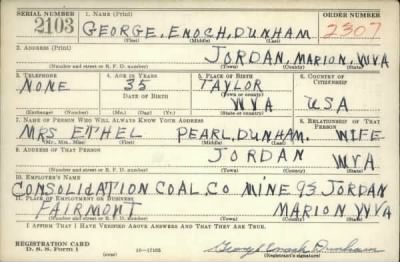 SERIAL NUMBER 1. NAME (Print) ORDER NUMBER
2103 GEORGE, ENOCH, DUNHAM 2307
(First) (Middle) (Last)
2. ADDRESS (Print)
JORDAN, MARION, WVA
(Number and street or R. F. D. number) (Town) (County) (State)
3. TELEPHONE 4. AGE IN YEARS 5. PLACE OF BIRTH 6. COUNTRY OF CITIZENSHIP
NONE 35 TAYLOR
DATE OF BIRTH (Town or county)
WVA USA
(Exchange) (Number) (Mo.) (Day) (Yr.) (State or country)
7. NAME OF PERSON WHO WILL ALWAYS KNOW YOUR ADDRESS 8. RELATIONSHIP OF THAT PERSON
MRS ETHEL PEARL, DUNHAM. WIFE
(Mr., Mrs., Miss) (First) (Middle) (Last)
9. ADDRESS OF THAT PERSON
JORDAN WVA
(Number and street or R. F. D. number) (Town) (County) (State)
10. EMPLOYER'S NAME
CONSOLIDATION COAL CO MINE 93 JORDAN
11. PLACE OF EMPLOYMENT OR BUSINESS
FAIRMONT MARION WVA
(Number and street or R. F. D. number) (Town) (County) (State)
I AFFIRM THAT I HAVE VERIFIED ABOVE ANSWERS AND THAT THEY ARE TRUE.
REGISTRATION CARD
D. S. S. Form 1 (over) 16-17105 George Enoch Dunham
(Registrant's signature)